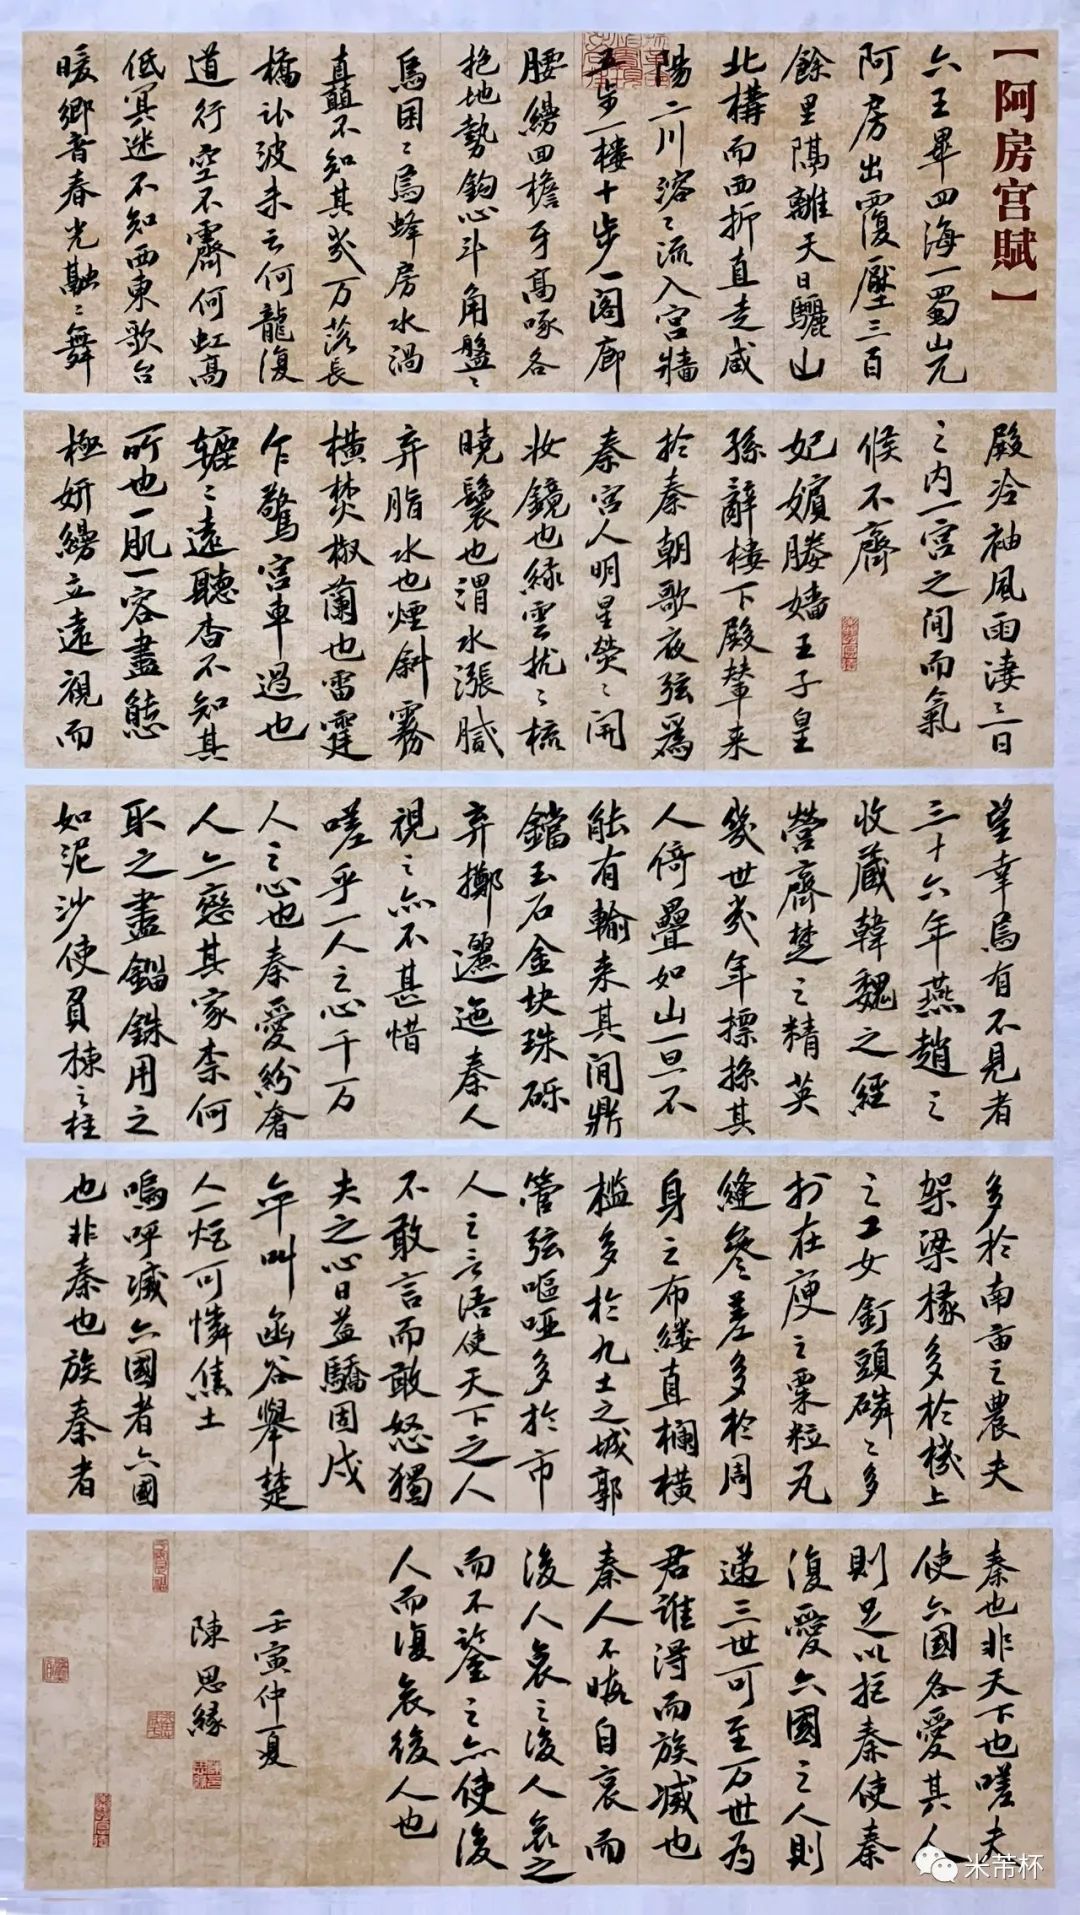 【阿房宫賦】
六王畢四海一蜀山兀
阿房出覆壓三百
餘里隔離天日驪山
北構而西折直走咸
陽二川溶〻流入宫牆
五步一樓十步一閣廊
腰縵回檐牙高啄各
抱地勢鈎心斗角盤〻
焉囷〻焉蜂房水渦
矗不知其幾万落長
橋卧波未云何龍復
道行空不霽何虹高
低冥迷不知西東歌台
暖響春光融〻舞
殿冷袖風雨淒〻一日
之内一宫之间而氣
候不齊
妃嬪媵嬙王子皇
孫辭樓下殿輦来
於秦朝歌夜弦爲
秦宫人明星熒〻開
妝鏡也緑雲扰〻梳
曉鬟也渭水漲膩
弃脂水也煙斜霧
橫焚椒蘭也雷霆
乍驚宫車過也
轆〻遠聽杳不知其
所也一肌一容盡態
極妍縵立遠視而
望幸焉有不見者
三十六年燕趙之
收藏韓魏之經
營齊楚之精英
幾世幾年摽掠其
人倚疊如山一旦不
能有輸来其间鼎
鐺玉石金块珠砾
弃擲邐迤秦人
視之亦不甚惜
嗟乎一人之心千万
人之心也秦愛紛奢
人亦戀其家柰何
取之盡錙銖用之
如泥沙使負棟之柱
多於南亩之農夫
架梁椽多於機上
之工女釘頭磷〻多
於在庾之粟粒瓦
縫參差多於周
身之布缕直欄横
槛多於九土之城郭
管弦嘔哑多於市
人之言语使天下之人
不敢言而敢怒獨
夫之心日益驕固戍
卒叫函谷舉楚
人一炬可憐焦土
嗚呼滅六國者六國
也非秦也族秦者
秦也非天下也嗟夫
使六國各愛其人
則足以拒秦使秦
復愛六國之人則
递三世可至万世为
君誰得而族滅也
秦人不暇自哀而
後人哀之後人哀之
而不鉴之亦使後
人而復哀後人也
壬寅仲夏
陳思緣
米芾杯